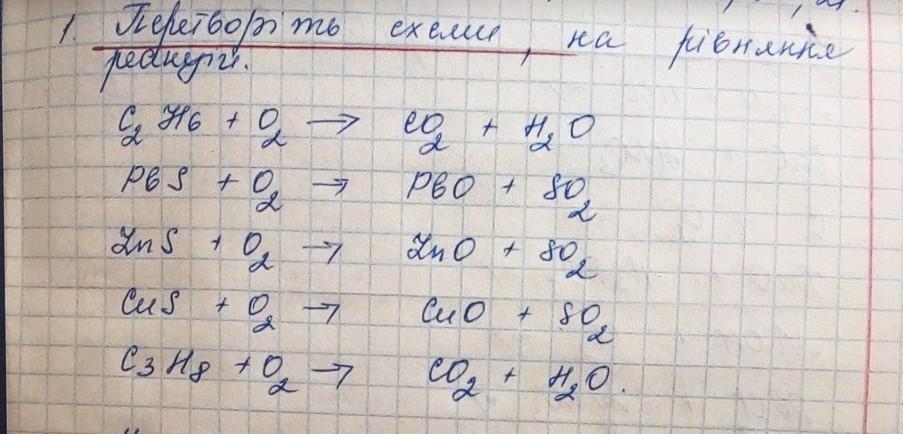 1. Перетворіть схеми, на рівняння
реакцій.
C₂H6 + O₂ → CO₂ + H₂O
PbS + O₂ → PbO + SO₂
ZnS + O₂ → ZnO + SO₂
CuS + O₂ → CuO + SO₂
C₃H₈ + O₂ → CO₂ + H₂O.